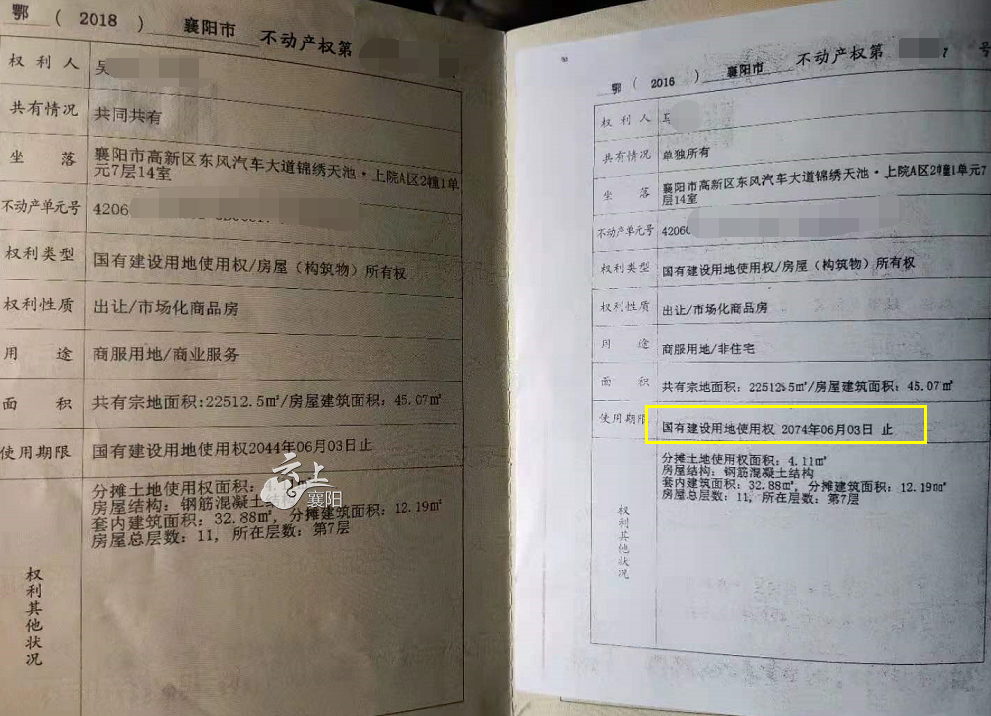 鄂 ( 2018 ) 襄阳市 不动产权第
权利人 吴
共有情况 共同共有
坐落 襄阳市高新区东风汽车大道锦绣天池·上院A区2幢1单
元7层14室
不动产单元号 4206
权利类型 国有建设用地使用权/房屋（构筑物）所有权
权利性质 出让/市场化商品房
用途 商服用地/商业服务
面积 共有宗地面积:22512.5㎡/房屋建筑面积：45.07㎡
使用期限 国有建设用地使用权2044年06月03日止
分摊土地使用权面积：
房屋结构：钢筋混凝土结
套内建筑面积：32.88㎡，分摊建筑面积：12.19㎡
房屋总层数：11，所在层数：第7层
权利其他状况
云上
襄阳
鄂 ( 2016 ) 襄阳市 不动产权第 号
权利人
共有情况 单独所有
坐落 襄阳市高新区东风汽车大道锦绣天池·上院A区2幢1单元7
层14室
不动产单元号 4206
权利类型 国有建设用地使用权/房屋（构筑物）所有权
权利性质 出让/市场化商品房
用途 商服用地/非住宅
面积 共有宗地面积：22512.5㎡/房屋建筑面积：45.07㎡
使用期限 国有建设用地使用权 2074年06月03日 止
分摊土地使用权面积：4.11㎡
房屋结构：钢筋混凝土结构
套内建筑面积：32.88㎡，分摊建筑面积：12.19㎡
房屋总层数：11，所在层数：第7层
权利其他状况